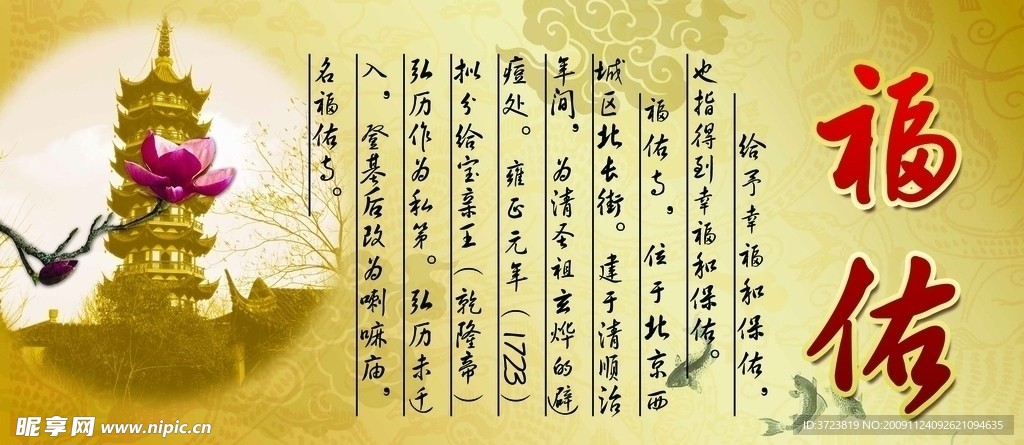 福佑
给予幸福和保佑，
也指得到幸福和保佑。
福佑寺，位于北京西
城区北长街。建于清顺治
年间，为清圣祖玄烨的避
痘处。雍正元年（1723）
拟分给宝亲王（乾隆帝）
弘历作为私第。弘历未迁
入，登基后改为喇嘛庙，
名福佑寺。
昵享网 www.nipic.cn
ID:3723819 NO:20091124092621094635